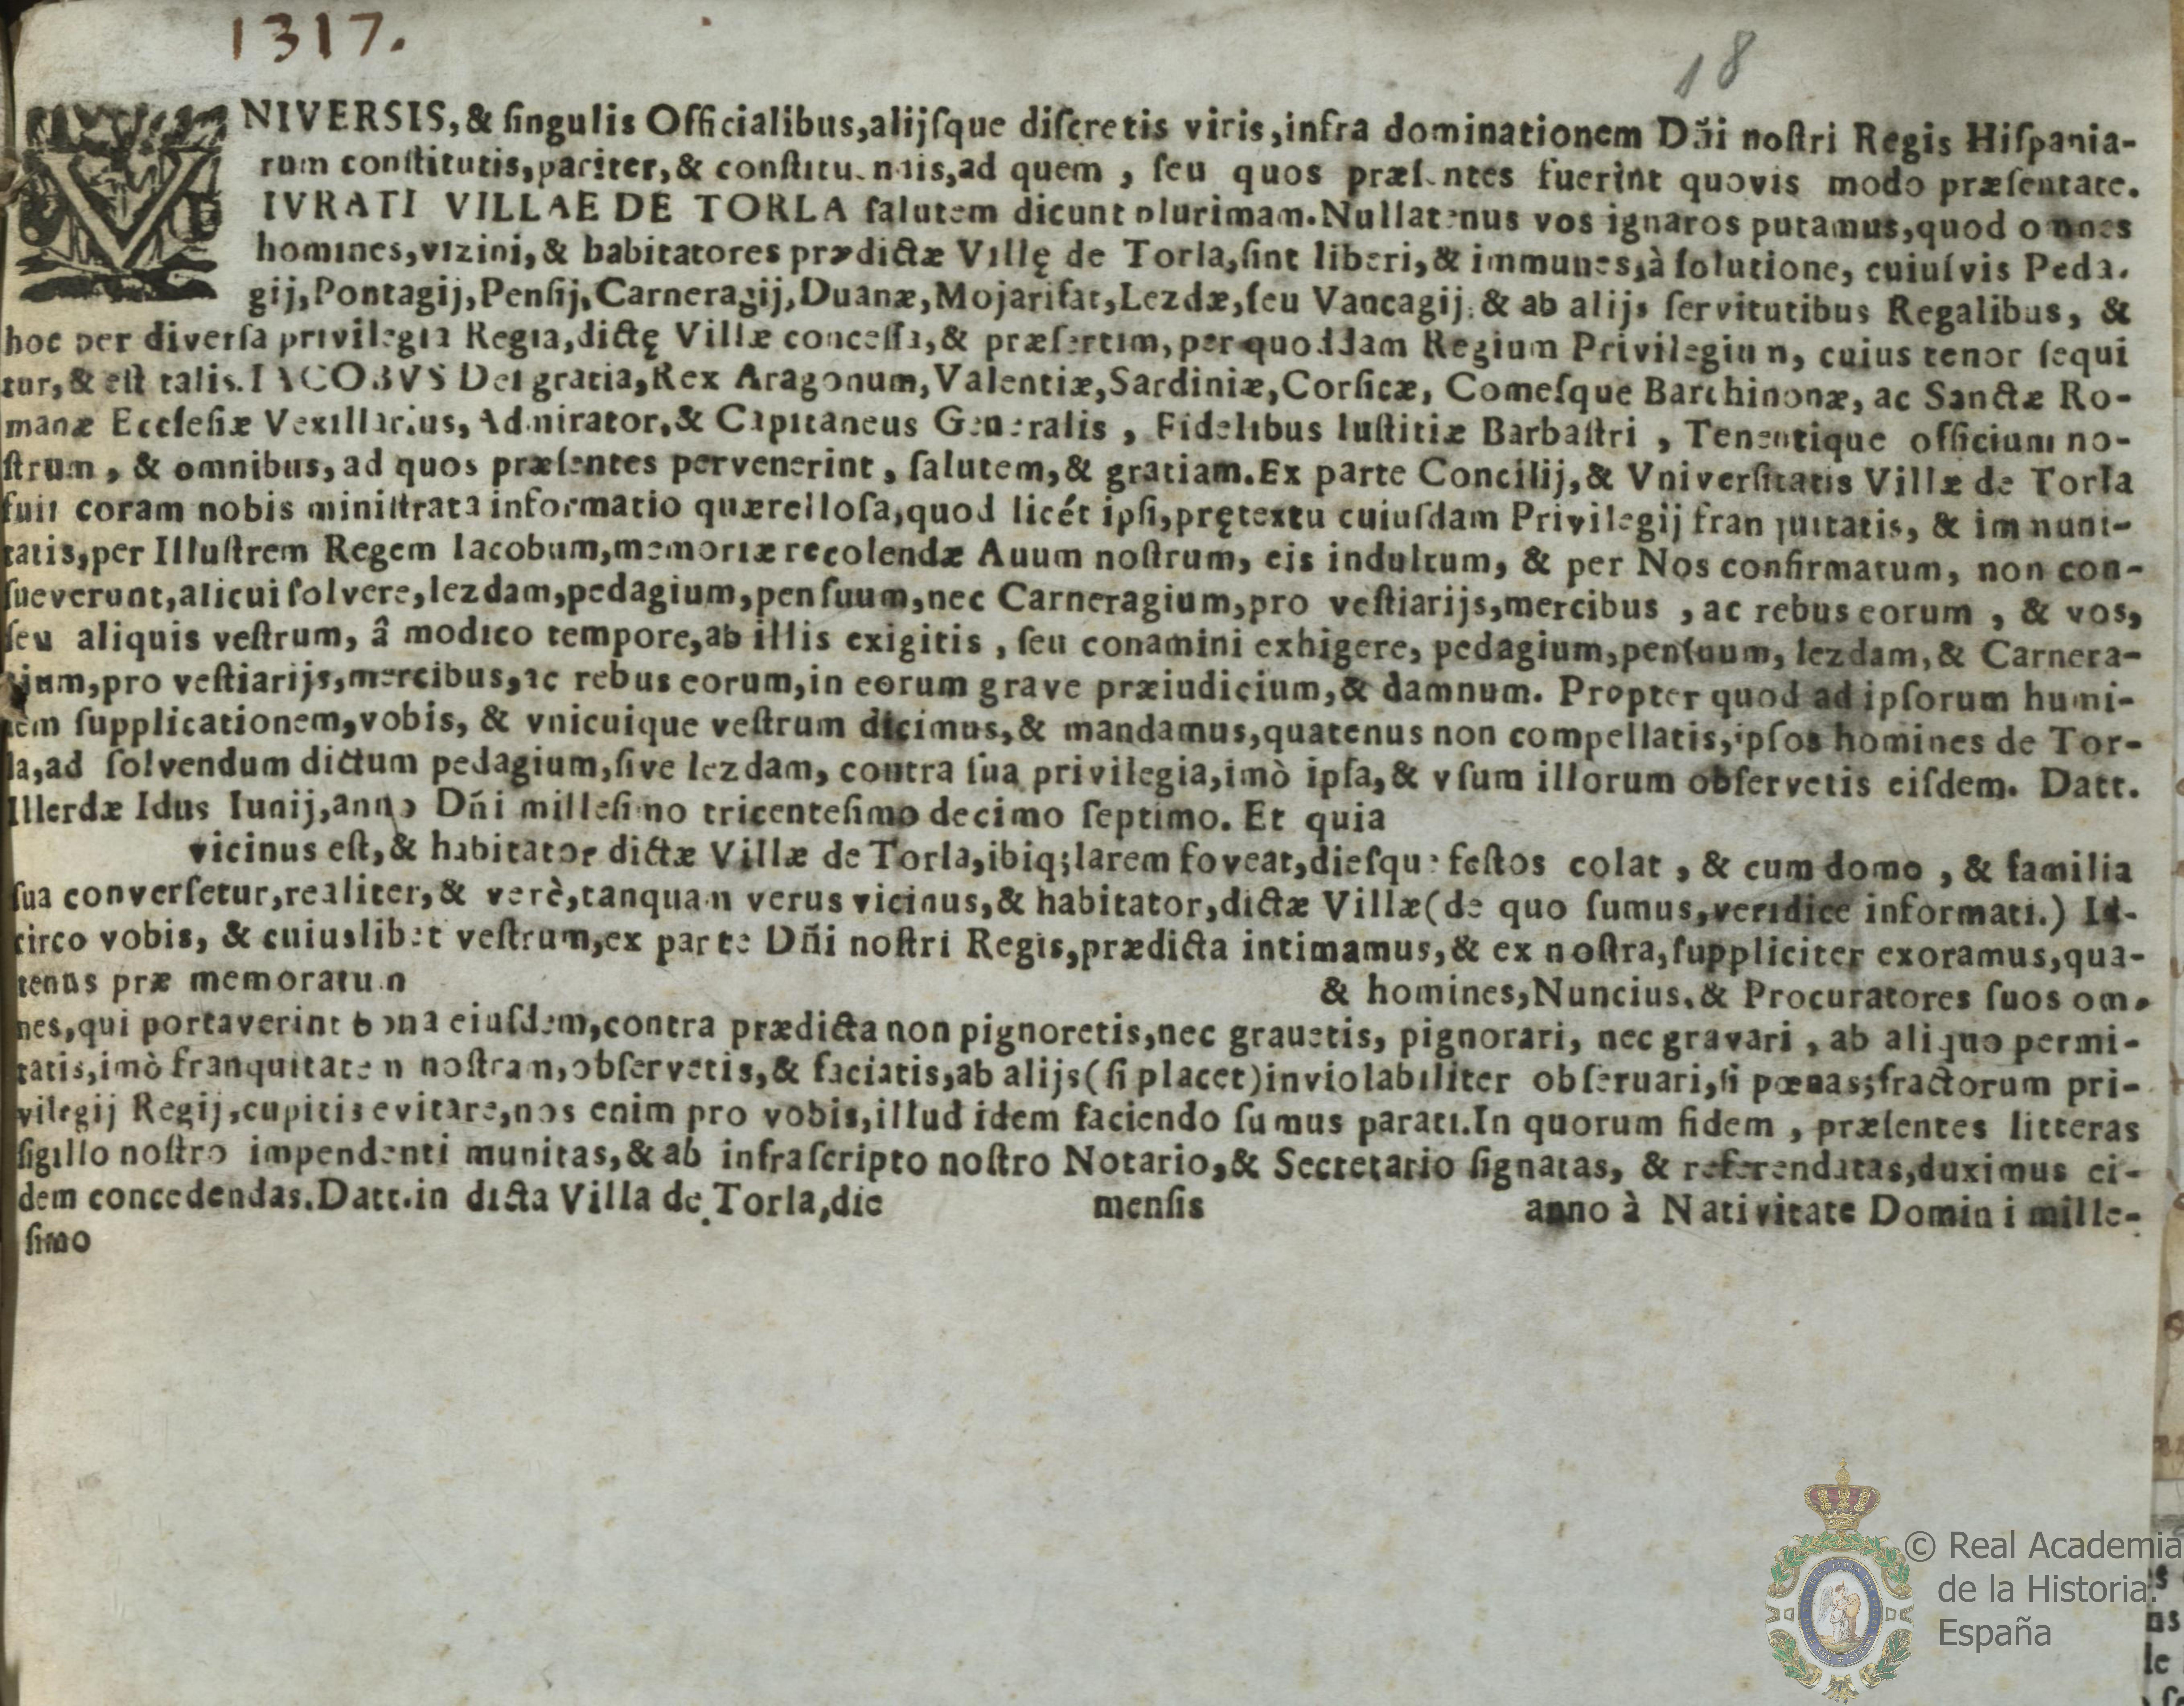 1317.
18
VNIVERSIS, & ſingulis Officialibus,alijſque diſcretis viris,infra dominationem Dñi noſtri Regis Hiſpania-
rum conſtitutis,pariter,& conſtitu ndis,ad quem , ſeu quos præſentes fuerint quovis modo præſentate.
IVRATI VILLAE DE TORLA ſalutem dicunt plurimam.Nullatenus vos ignaros putamus,quod omnes
homines,vizini,& habitatores prædictæ Villę de Torla,ſint liberi,& immunes,à ſolutione, cuiuſvis Peda.
gij,Pontagij,Penſij,Carneragij,Duanæ,Mojarifat,Lezdæ,ſeu Vancagij,& ab alijs ſervitutibus Regalibus, &
hoc per diverſa privilegia Regia,dictę Villæ conceſſa,& præſertim,per quoddam Regium Privilegium, cuius tenor ſequi
tur,& eſt talis.IACOBVS Dei gratia,Rex Aragonum,Valentiæ,Sardiniæ,Corſicæ, Comeſque Barchinonæ, ac Sanctæ Ro-
manæ Eccleſiæ Vexillarius, Admirator,& Capitaneus Generalis , Fidelibus Iuſtitiæ Barbaſtri , Tenentique officium no-
ſtrum , & omnibus, ad quos præſentes pervenerint , ſalutem,& gratiam.Ex parte Concilij,& Vniverſitatis Villæ de Torla
fuit coram nobis miniſtrata informatio quærelloſa,quod licét ipſi,prętextu cuiuſdam Privilegij franquitatis, & immuni-
tatis,per Illuſtrem Regem Iacobum,memoriæ recolendæ Auum noſtrum, eis indultum, & per Nos confirmatum, non con-
ſueverunt,alicui ſolvere,lezdam,pedagium,penſuum,nec Carneragium,pro veſtiarijs,mercibus , ac rebus eorum , & vos,
ſeu aliquis veſtrum, â modico tempore,ab illis exigitis , ſeu conamini exhigere, pedagium,penſuum, lezdam,& Carnera-
gium,pro veſtiarijs,mercibus,ac rebus eorum,in eorum grave præiudicium,& damnum. Propter quod ad ipſorum humi-
lem ſupplicationem,vobis, & vnicuique veſtrum dicimus,& mandamus,quatenus non compellatis,ipſos homines de Tor-
la,ad ſolvendum dictum pedagium,ſive lezdam, contra ſua privilegia,imò ipſa,& vſum illorum obſervetis eiſdem. Datt.
Illerdæ Idus Iunij,anno Dñi milleſimo tricenteſimo decimo ſeptimo. Et quia
vicinus eſt,& habitator dictæ Villæ de Torla,ibiq;larem foveat,dieſque feſtos colat , & cum domo , & familia
ſua converſetur,realiter,& verè,tanquam verus vicinus,& habitator,dictæ Villæ(de quo ſumus,veridice informati.) Id-
circo vobis, & cuiuslibet veſtrum,ex parte Dñi noſtri Regis,prædicta intimamus,& ex noſtra,ſuppliciter exoramus,qua-
tenus præ memoratum & homines,Nuncius,& Procuratores ſuos om-
nes,qui portaverint bona eiuſdem,contra prædicta non pignoretis,nec grauetis, pignorari, nec gravari , ab aliquo permi-
tatis,imò franquitatem noſtram,obſervetis,& faciatis,ab alijs(ſi placet)inviolabiliter obſeruari,ſi pœnas;fractorum pri-
vilegij Regij,cupitis evitare,nos enim pro vobis,illud idem faciendo ſumus parati.In quorum fidem , præſentes litteras
ſigillo noſtro impendenti munitas,& ab infraſcripto noſtro Notario,& Secretario ſignatas, & referendatas,duximus ei-
dem concedendas.Datt.in dicta Villa de Torla,die mensis anno à Nativitate Domini mille-
ſimo
© Real Academia
de la Historia.
España